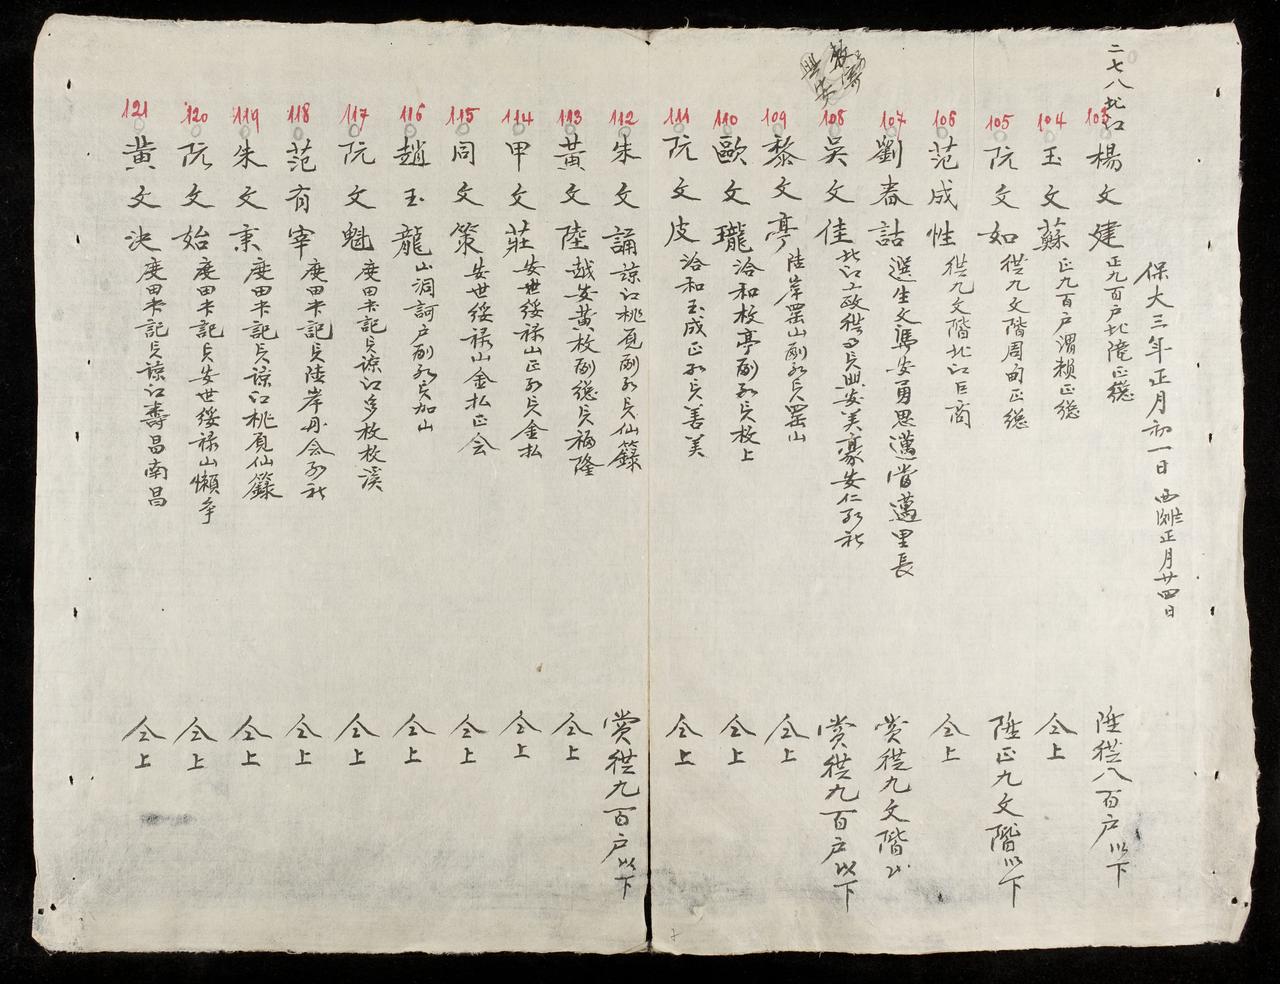 二七八北江
保大三年正月初一日 西𠄼正月廿四日
103 楊文建 正九百戶北𨻶正總 陞從八百戶以下
104 玉文蘇 正九百戶渭賴正總 仝上
105 阮文如 從九文階周甸正總 陞正九文階以下
106 范成性 從九文階北江巨商 仝上
107 劉春詰 選生文馬安勇思邁當邁里長 賞從九文階以
108 吳文佳 北江工政從司員安美豪安仁社 賞從九百戶以下
109 黎文亭 陸岸罷山副員罷山 仝上
110 歐文瓏 洽和枚亭副員枚上 仝上
111 阮文皮 洽和玉成正員善美 仝上
112 朱文誦 諒江桃副員仙籙 賞從九百戶以下
113 黃文陸 越安黃枚副總員福隆 仝上
114 甲文莊 安世綏祿山正員金払 仝上
115 同文策 安世綏祿山金払正会 仝上
116 趙玉龍 山洞訶戶副員加山 仝上
117 阮文魁 度田卡記員諒江多枚枚溪 仝上
118 范有宰 度田卡記員陸岸丹会社 仝上
119 朱文秉 度田卡記員諒江桃仙籙 仝上
120 阮文始 度田卡記員安世綏祿山懶爭 仝上
121 黃文決 度田卡記員諒江壽昌南昌 仝上